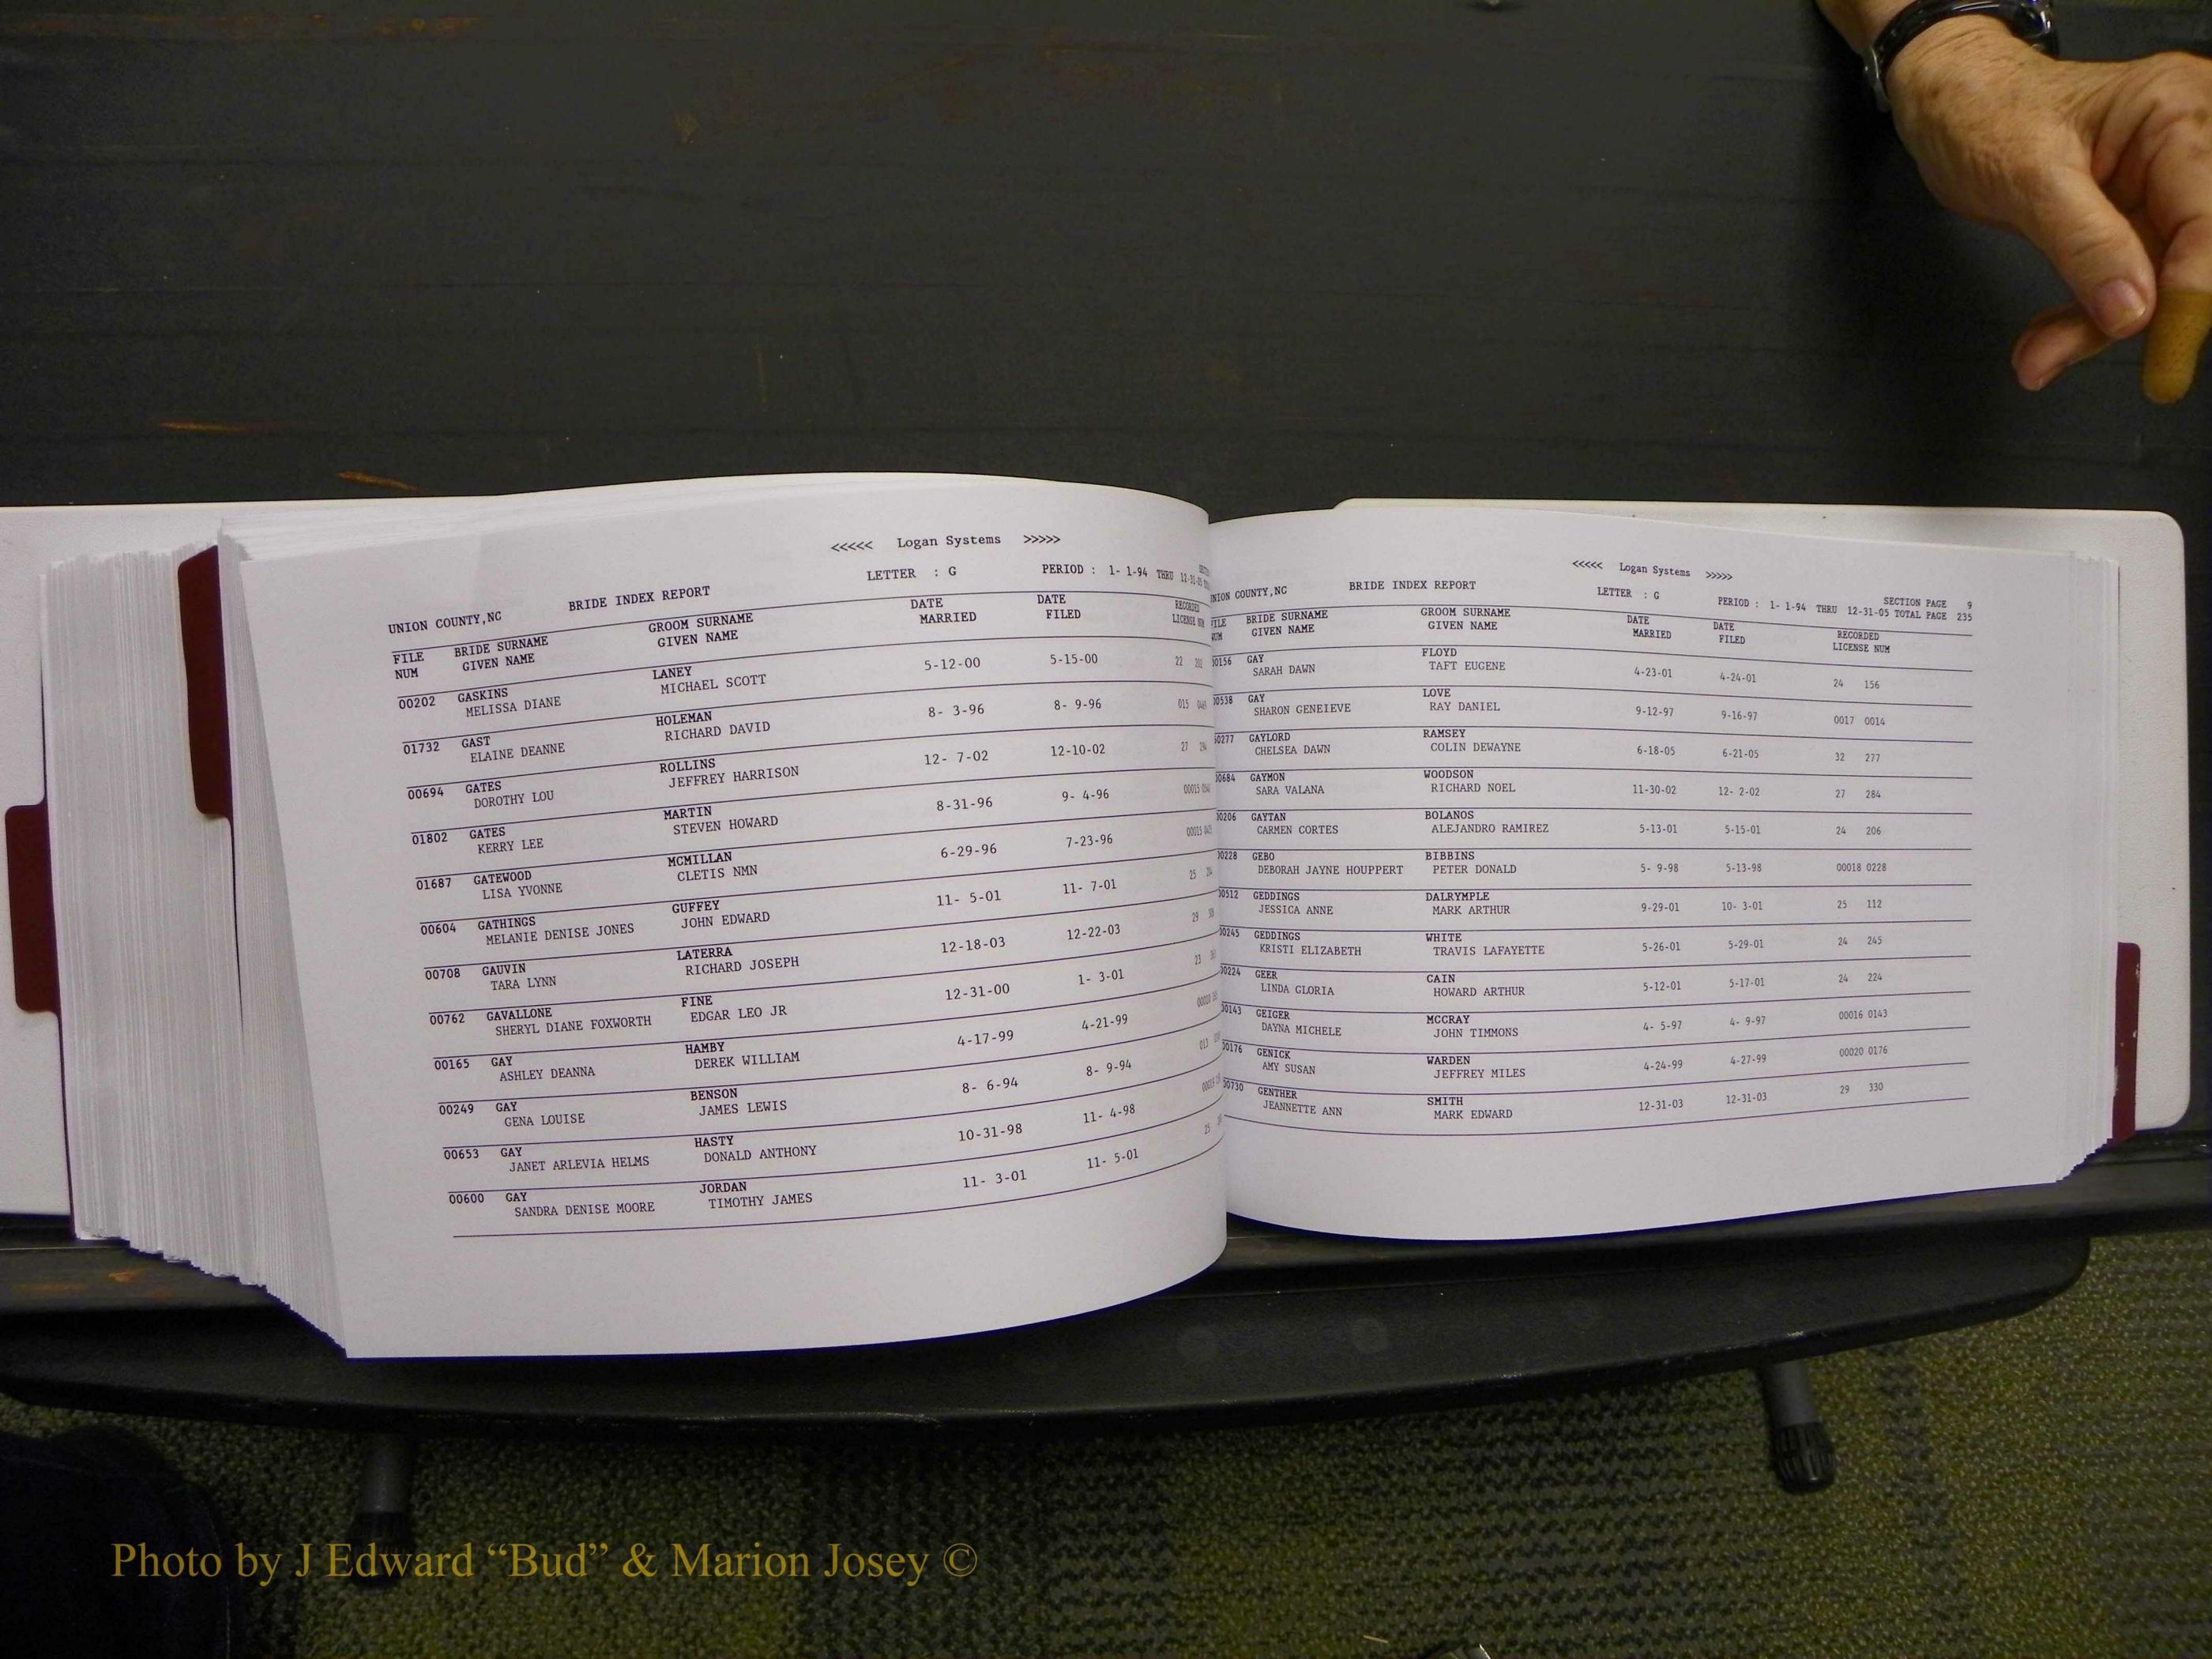 <<<<< Logan Systems >>>>>
UNION COUNTY,NC BRIDE INDEX REPORT LETTER : G PERIOD : 1- 1-94 THRU
FILE BRIDE SURNAME GROOM SURNAME DATE DATE RECORDED
NUM GIVEN NAME GIVEN NAME MARRIED FILED LICENSE
00202 GASKINS LANEY 5-12-00 5-15-00 22
MELISSA DIANE MICHAEL SCOTT
01732 GAST HOLEMAN 8- 3-96 8- 9-96 015
ELAINE DEANNE RICHARD DAVID
00694 GATES ROLLINS 12- 7-02 12-10-02 27
DOROTHY LOU JEFFREY HARRISON
01802 GATES MARTIN 8-31-96 9- 4-96 00015
KERRY LEE STEVEN HOWARD
01687 GATEWOOD MCMILLAN 6-29-96 7-23-96 00015
LISA YVONNE CLETIS NMN
00604 GATHINGS GUFFEY 11- 5-01 11- 7-01 25
MELANIE DENISE JONES JOHN EDWARD
00708 GAUVIN LATERRA 12-18-03 12-22-03 29
TARA LYNN RICHARD JOSEPH
00762 GAVALLONE FINE 12-31-00 1- 3-01 23
SHERYL DIANE FOXWORTH EDGAR LEO JR
00165 GAY HAMBY 4-17-99 4-21-99 00020
ASHLEY DEANNA DEREK WILLIAM
00249 GAY BENSON 8- 6-94 8- 9-94 013
GENA LOUISE JAMES LEWIS
00653 GAY HASTY 10-31-98 11- 4-98
JANET ARLEVIA HELMS DONALD ANTHONY
00600 GAY JORDAN 11- 3-01 11- 5-01 25
SANDRA DENISE MOORE TIMOTHY JAMES
<<<<< Logan Systems >>>>>
COUNTY,NC BRIDE INDEX REPORT LETTER : G SECTION PAGE 9
PERIOD : 1- 1-94 THRU 12-31-05 TOTAL PAGE 235
FILE BRIDE SURNAME GROOM SURNAME DATE DATE RECORDED
NUM GIVEN NAME GIVEN NAME MARRIED FILED LICENSE NUM
00156 GAY FLOYD 4-23-01 4-24-01 24 156
SARAH DAWN TAFT EUGENE
00538 GAY LOVE 9-12-97 9-16-97 0017 0014
SHARON GENEIEVE RAY DANIEL
00277 GAYLORD RAMSEY 6-18-05 6-21-05 32 277
CHELSEA DAWN COLIN DEWAYNE
00684 GAYMON WOODSON 11-30-02 12- 2-02 27 284
SARA VALANA RICHARD NOEL
00206 GAYTAN BOLANOS 5-13-01 5-15-01 24 206
CARMEN CORTES ALEJANDRO RAMIREZ
00228 GEBO BIBBINS 5- 9-98 5-13-98 00018 0228
DEBORAH JAYNE HOUPPERT PETER DONALD
00512 GEDDINGS DALRYMPLE 9-29-01 10- 3-01 25 112
JESSICA ANNE MARK ARTHUR
00245 GEDDINGS WHITE 5-26-01 5-29-01 24 245
KRISTI ELIZABETH TRAVIS LAFAYETTE
00224 GEER CAIN 5-12-01 5-17-01 24 224
LINDA GLORIA HOWARD ARTHUR
00143 GEIGER MCCRAY 4- 5-97 4- 9-97 00016 0143
DAYNA MICHELE JOHN TIMMONS
00176 GENICK WARDEN 4-24-99 4-27-99 00020 0176
AMY SUSAN JEFFREY MILES
00730 GENTHER SMITH 12-31-03 12-31-03 29 330
JEANNETTE ANN MARK EDWARD
Photo by J Edward “Bud” & Marion Josey ©